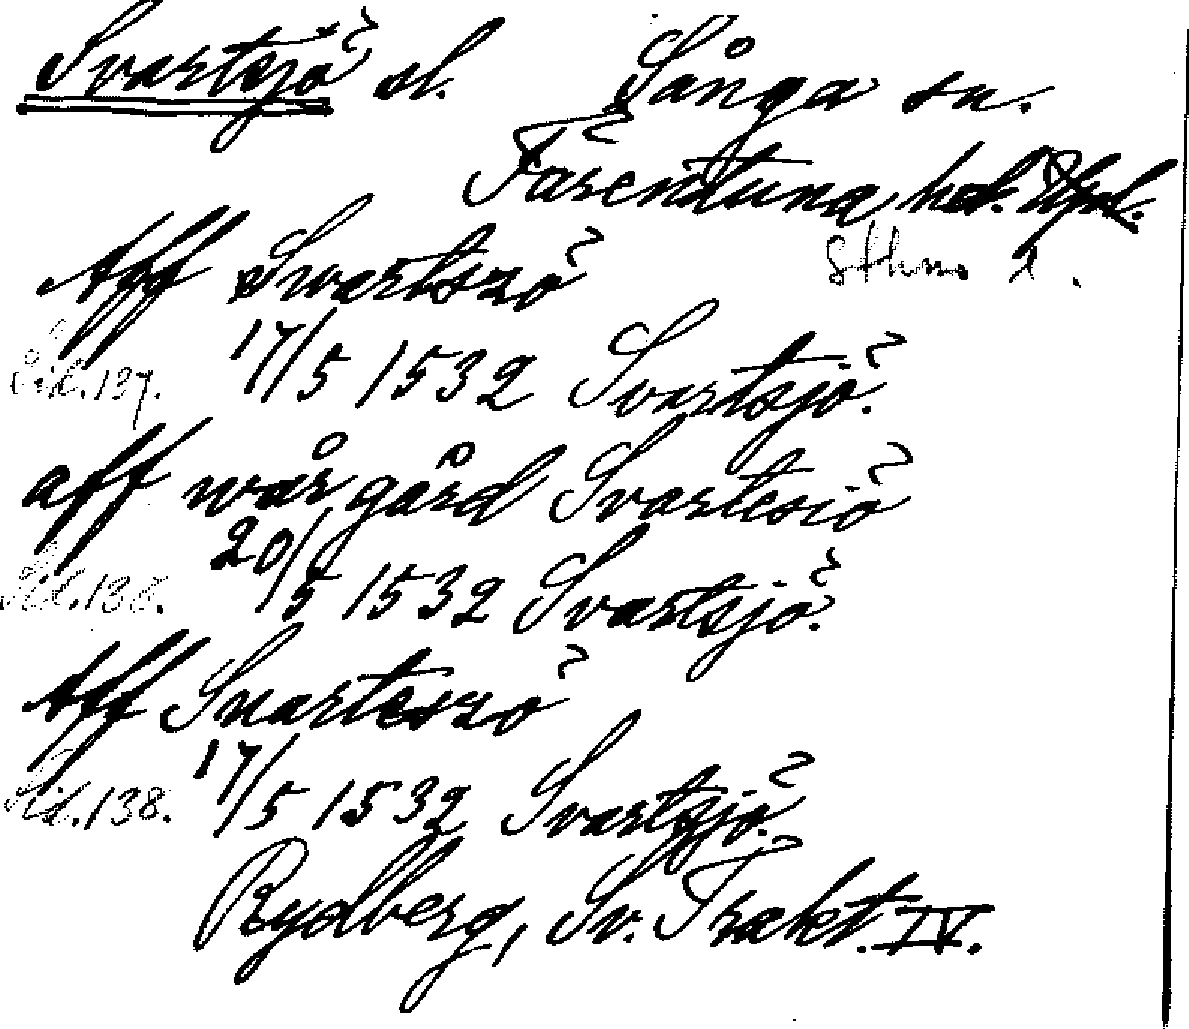 Svartsjö sl. Sånga sn.
Färentuna hd. Upl.
Sthms l.
Aff Swartszö
Sid. 137. 17/5 1532 Svartsjö.
aff wår gård Svartesiö
Sid. 138. 20/5 1532 Svartsjö.
Aff Suarteszö
Sid. 138. 17/5 1532 Svartsjö.
Rydberg, Sv. Trakt. IV.